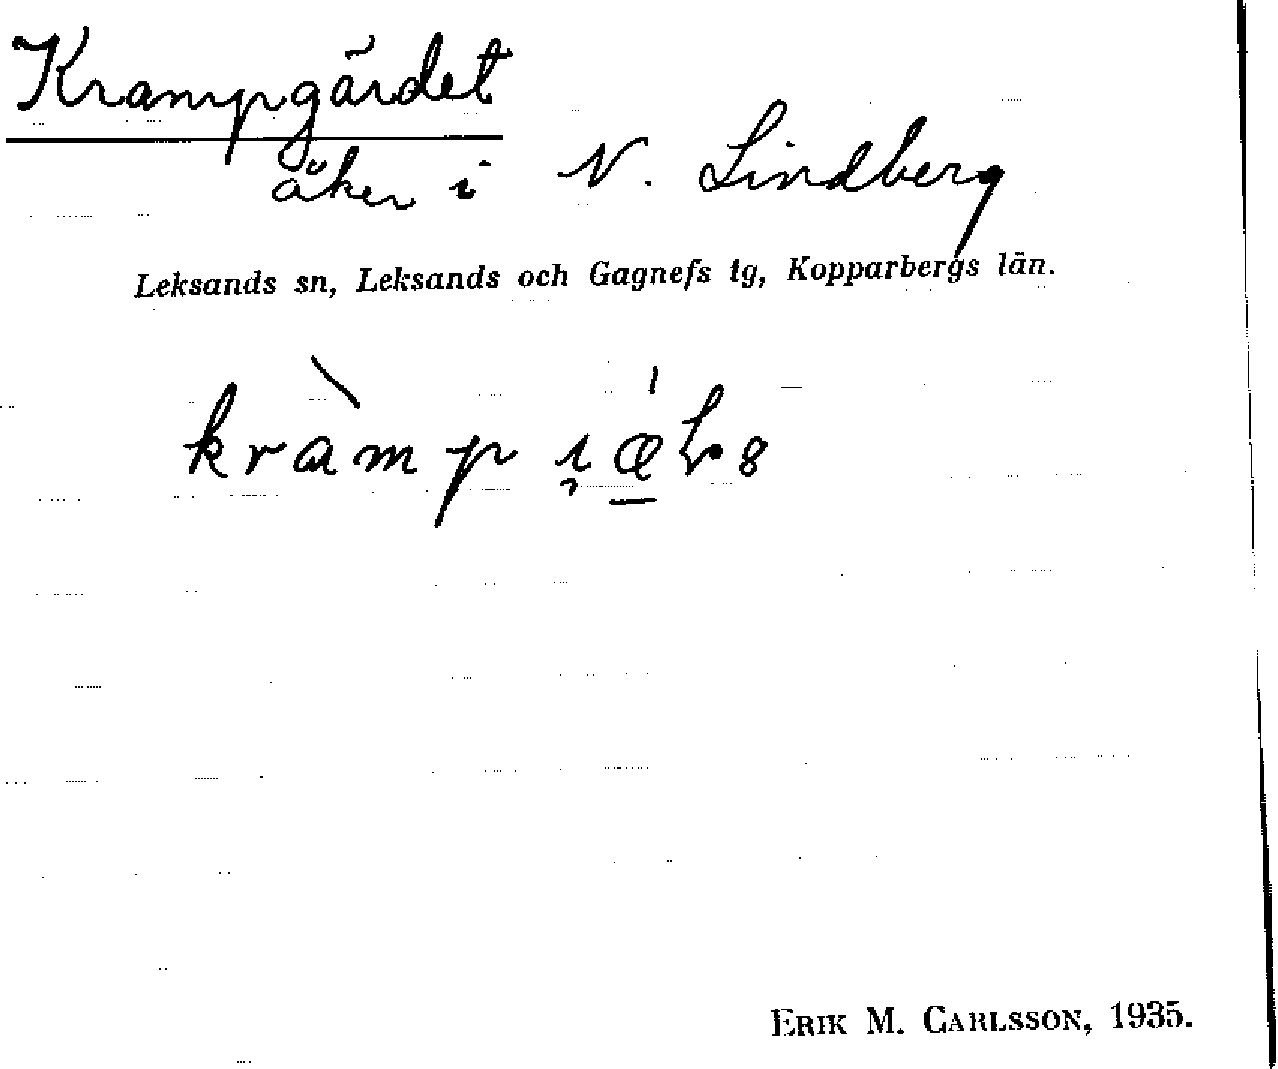 Krampgärdet
åker i N. Lindberg
Leksands sn, Leksands och Gagnefs tg, Kopparbergs län.
ERIK M. CARLSSON, 1935.